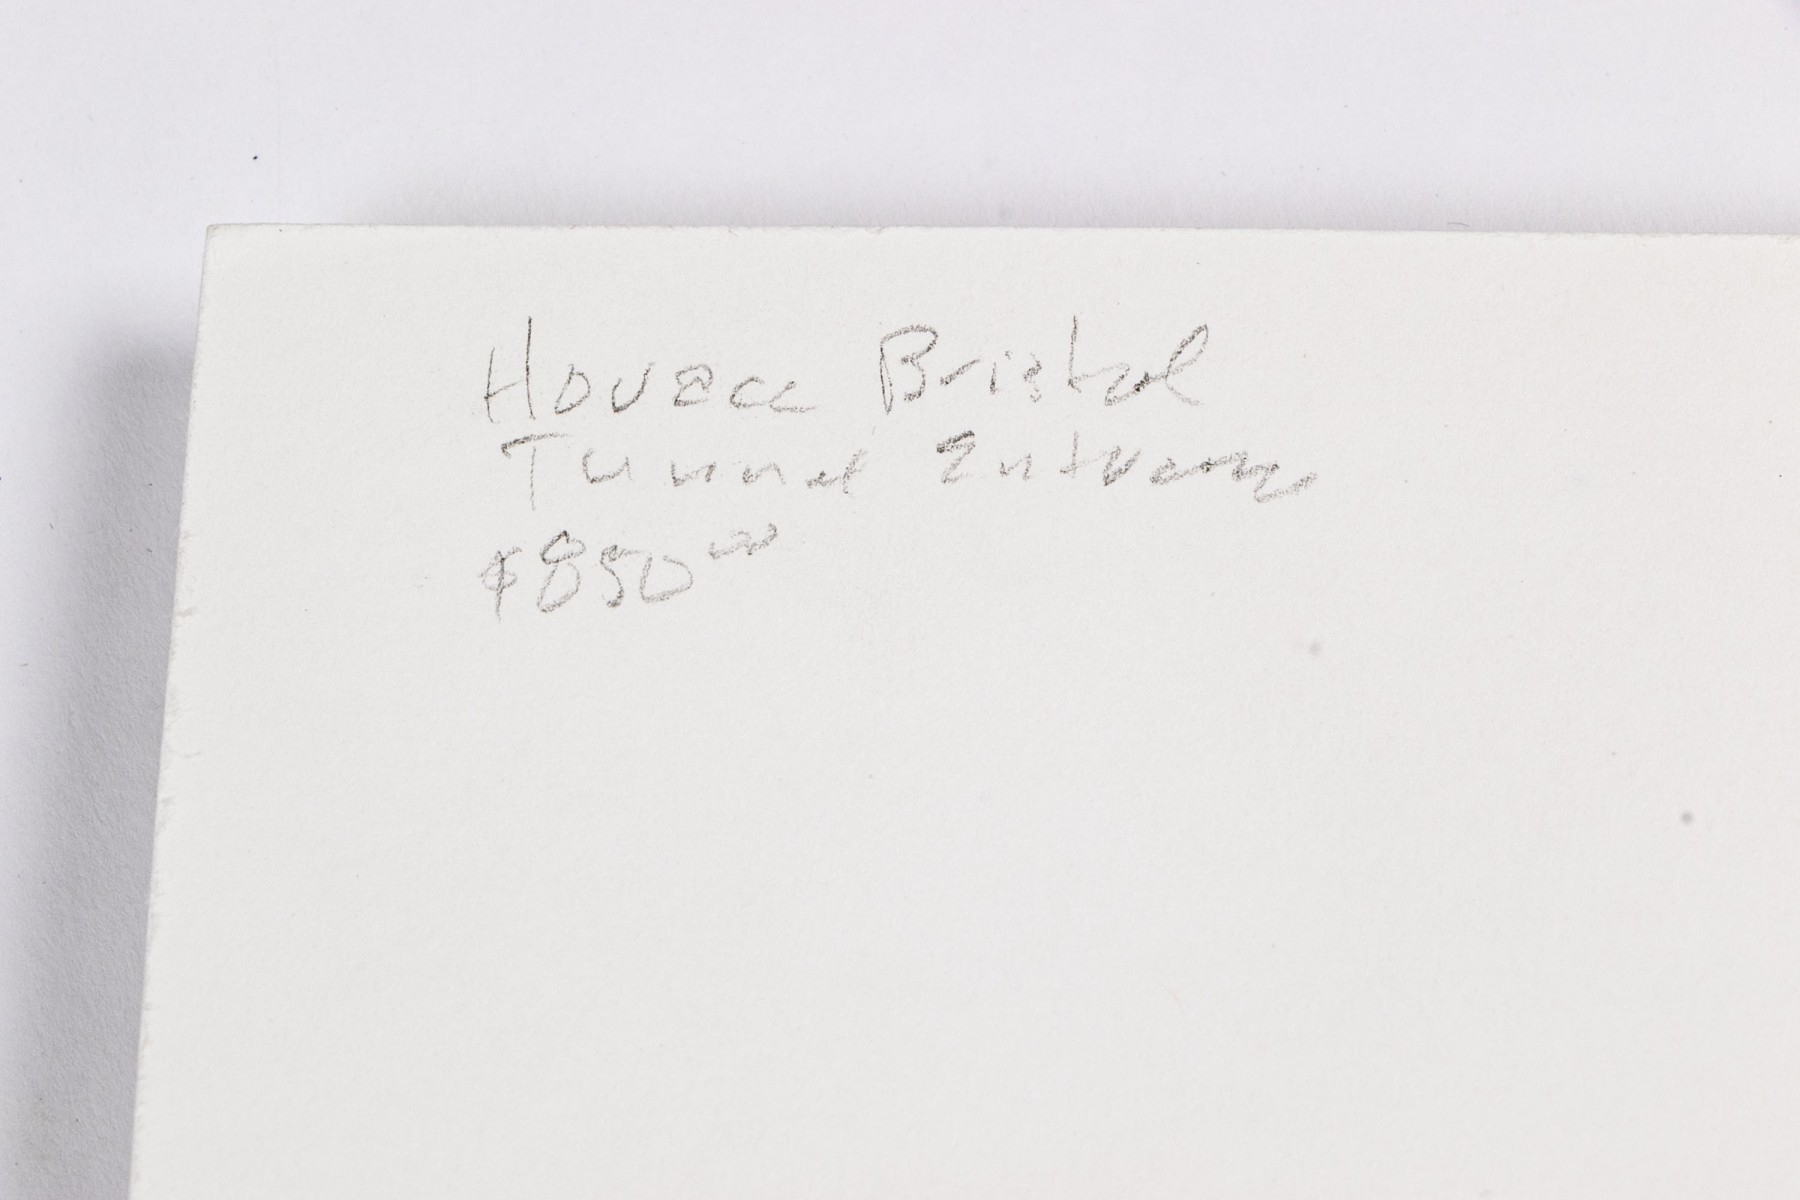 Horace Bristol
Tunnel Entrance
$850.00